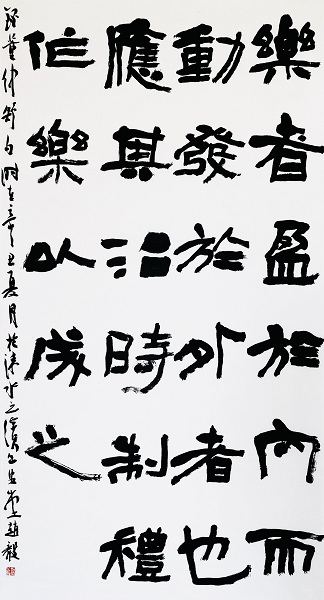 樂者盈於內而
動發於外者也
應其治時制禮
作樂以成之
錄董仲舒句時在辛丑夏月於水之濱